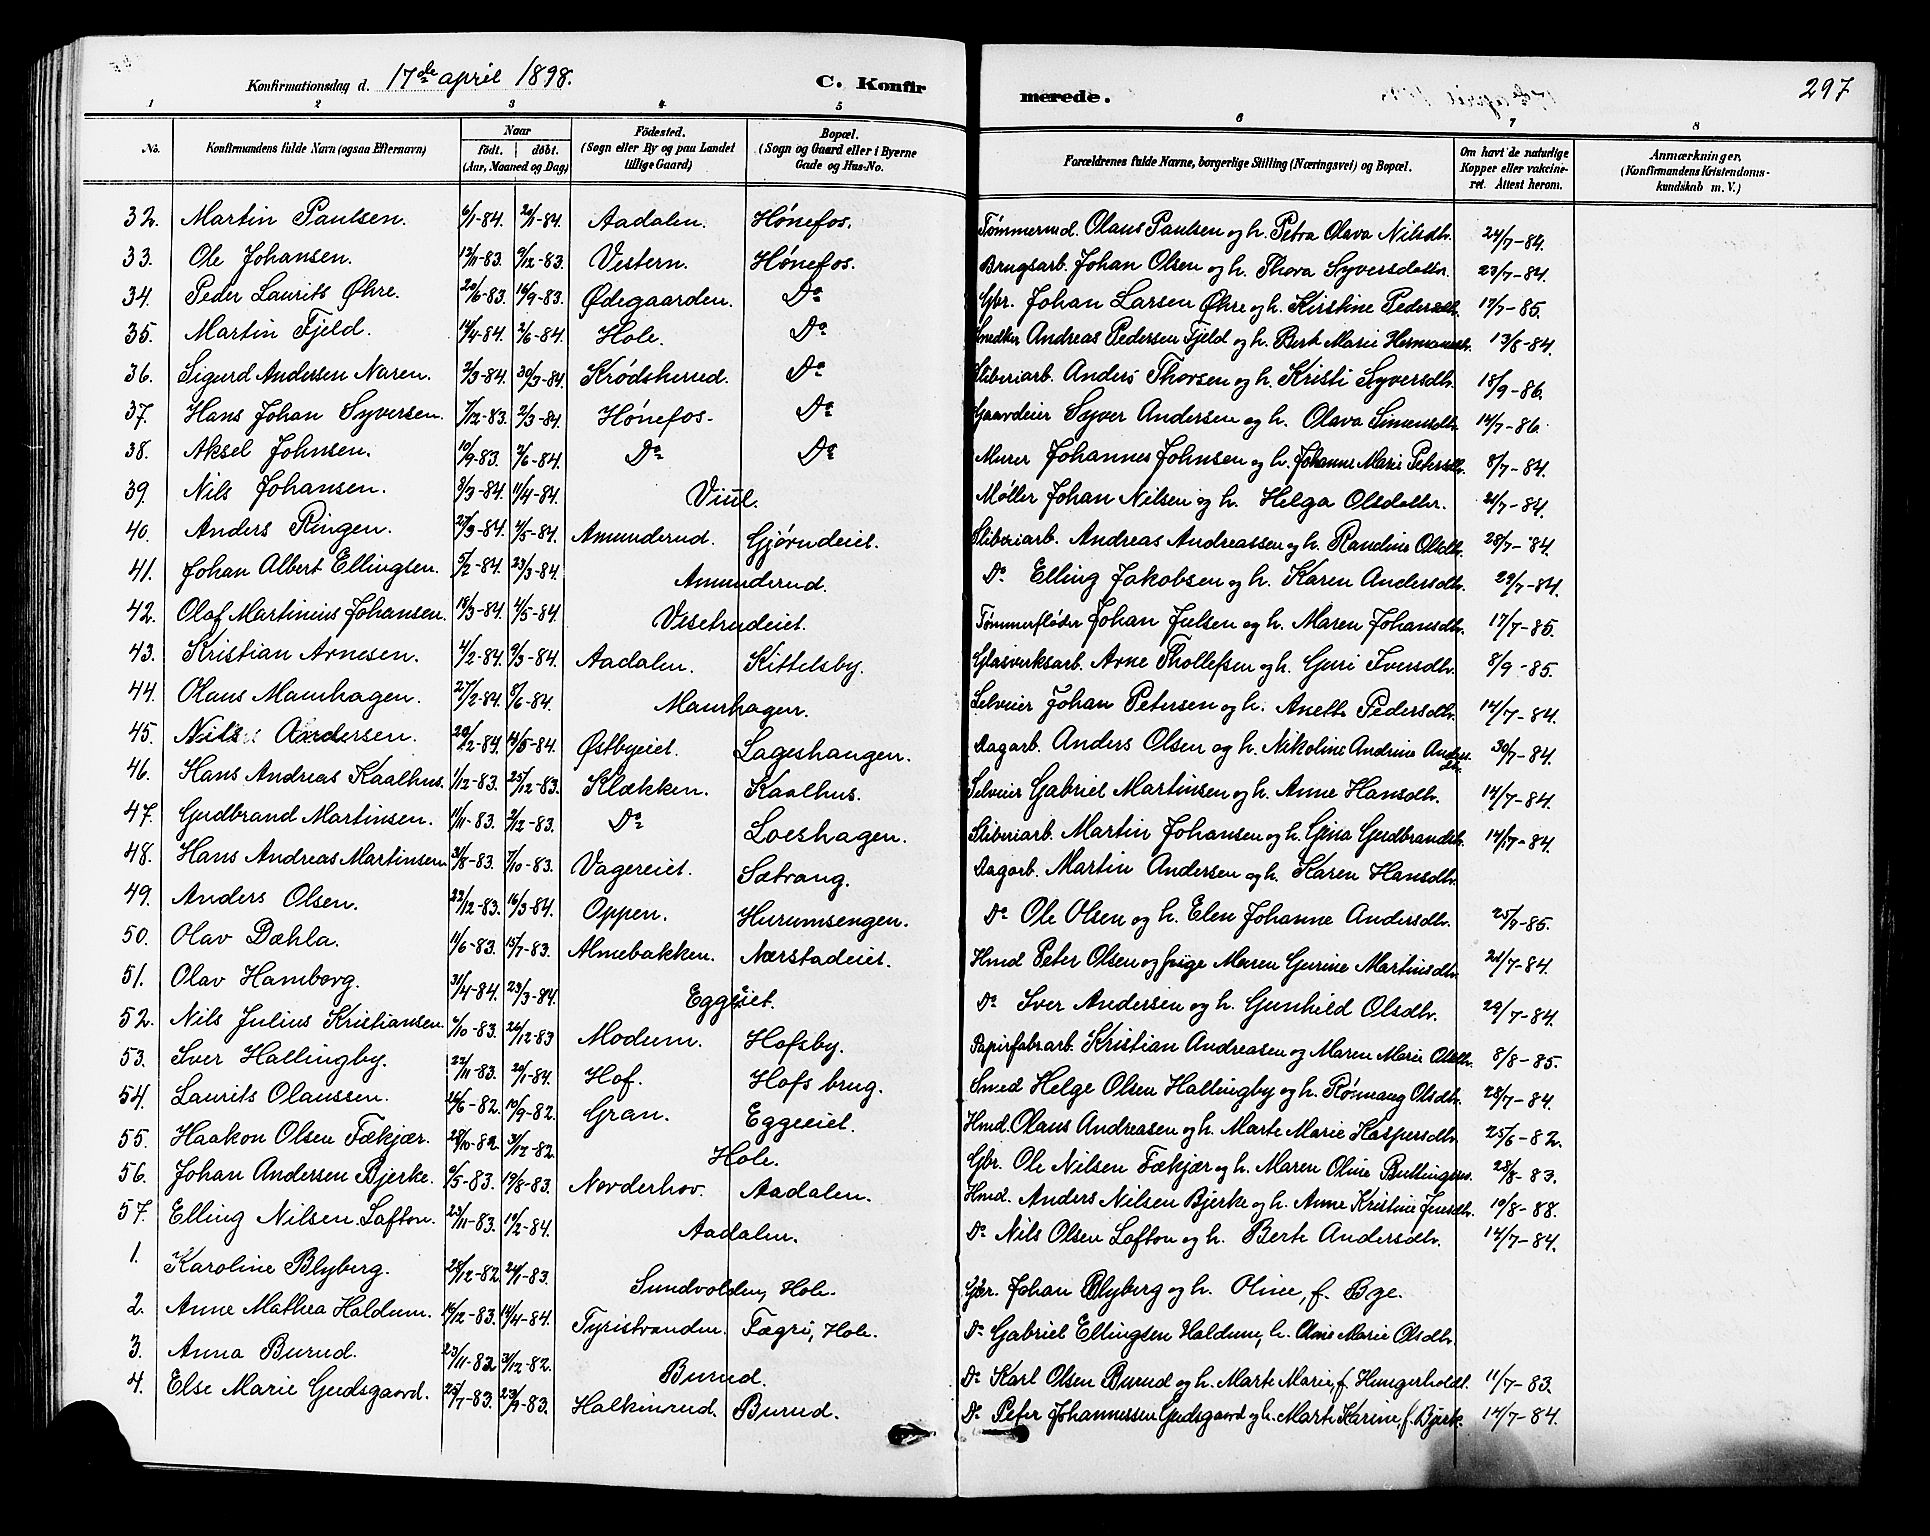 Konfirmationsdag d. 17de april 1898. C. Konfir merede. 297
1 2 3 4 5 6 7 8
No. Konfirmandens fulde Navn (ogsaa Efternavn) Naar födt. döbt. (Aar, Maaned og Dag) Födested. (Sogn eller By og paa Landet tillige Gaard) Bopæl. (Sogn og Gaard eller i Byerne Gade og Hus-No. Forældrenes fulde Navne, borgerlige Stilling (Næringsvei) og Bopæl. Om havt de naturlige Kopper eller vakcineret. Attest herom. Anmærkninger. (Konfirmandens Kristendomskundskab m. V.)
32. Martin Paulsen. 6/1-84. 20/1-84. Aadalen. Hönefos. Tömmermd. Olaus Paulsen og h. Petra Olava Nilsdtr. 24/7-84.
33. Ole Johansen. 12/11-83. 9/12-83. Vestern. Hönefos. Brugsarb. Johan Olsen og h. Thora Syversdatter. 23/7-84.
34. Peder Laurits Økre. 20/6-83. 16/9-83. Ødegaarden. Do Gbr. Johan Larsen Økre og h. Kristine Pedersdtr. 17/7-85.
35. Martin Fjeld. 14/4-84. 2/6-84. Hole. Do Andreas Pedersen Fjeld og h. Bert Marie 13/8-84.
36. Sigurd Andersen Naren. 2/3-84. 30/3-84. Krødsherud. Do Sliberiarb. Anders Thorsen og h. Kristi Syversdtr. 18/9-86.
37. Hans Johan Syversen. 7/12-83. 2/3-84. Hönefos. Do Gaardeier Syver Andersen og h. Olava Simensdtr. 14/7-86.
38. Aksel Johnsen. 10/9-83. 2/6-84. Do Do Murer Johannes Johnsen og h. Johanne Marie Petersdtr. 8/7-84.
39. Nils Johansen. 3/3-84. 11/4-84. Viul. Møller Johan Nilsen og h. Helga Olsdatter. 21/7-84.
40. Anders Ringen. 27/3-84. 4/5-84. Amunderud. Gjørudeiet. Sliberiarb. Andreas Andreassen og h. Randine Olsdtr. 28/7-84.
41. Johan Albert Ellingsen. 5/2-84. 23/3-84. Amunderud. Do Elling Jakobsen og h. Karen Andersdtr. 29/7-84.
42. Olaf Martinius Johansen. 18/3-84. 4/5-84. Vesetrudeiet. Tømmerfløder Johan Juelsen og h. Maren Johansdtr. 17/7-85.
43. Kristian Arnesen. 4/2-84. 9/3-84. Aadalen. Kittelsby. Glasverksarb. Arne Thollefsen og h. Guri Iversdtr. 8/9-85.
44. Olaus Maurhagen. 27/2-84. 8/6-84. Maurhagen. Selveier Johan Petersen og h. Anette Pedersdtr. 14/7-84.
45. Nils Andersen. 20/2-84. 14/5-84. Østbyeiet. Lageshaugen. Dagarb. Anders Olsen og h. Nikoline Andrine Andersdtr. 30/7-84.
46. Hans Andreas Kaalhus. 1/12-83. 25/12-83. Klækken. Kaalhus. Selveier Gabriel Martinsen og h. Anne Hansdtr. 14/7-84.
47. Gudbrand Martinsen. 11/11-83. 2/12-83. Do Loeshagen. Sliberiarb. Martin Johansen og h. Gina Gudbrandsdtr. 14/7-84.
48. Hans Andreas Martinsen 31/8-83. 7/10-83. Vagereiet. Sætrang. Dagarb. Martin Andersen og h. Karen Hansdtr.
49. Anders Olsen. 22/12-83. 16/3-84. Oppen. Hurumsengen. Do Ole Olsen og h. Elen Johanne Andersdtr. 25/7-85.
50. Olav Dæhla. 11/6-83. 15/7-83. Almebakken. Nærstadeiet. Hmd Peter Olsen og pige Maren Gurine Martinsdtr. 22/7-84.
51. Olav Hamborg. 31/4-84. 23/3-84. Eggeiet. Do Iver Andersen og h. Gunhild Olsdtr. 29/7-84.
52. Nils Julius Kristiansen. 6/10-83. 26/12-83 Modum. Hofsby. Papirfabrarb. Kristian Andreasen og Maren Marie Olsdtr. 8/8-85.
53. Iver Hallingby. 22/11-83. 20/1-84. Hof. Hofs brug. Smed Helge Olsen Hallingby og h. Rønnaug Olsdtr. 28/7-84.
54. Laurits Olaussen. 26/6-82. 10/9-82. Gran. Eggeeiet. Hmd. Olaus Andreasen og h. Marte Marie Kaspersdtr. 25/6-82.
55. Haakon Olsen Fækjær. 28/10-82. 31/12-82. Hole. Gbr. Ole Nilsen Fækjær og h. Maren Oline 28/8-83.
56. Johan Andersen Bjerke. 6/5-83. 19/8-83. Norderhov. Aadalen. Hmd. Anders Nilsen Bjerke og h. Anne Kristine Jensdtr. 10/8-88.
57. Elling Nilsen Lafton. 23/11-83. 10/2-84. Aadalen. Do Nils Olsen Lafton og h. Berte Andersdtr. 14/7-84.
1. Karoline Blyberg. 28/12-82. 24/1-83. Sundvolden, Hole. Gbr. Johan Blyberg og h. Oline, f. Bye.
2. Anne Mathea Haldum. 16/12-83. 14/4-84. Tyristranden. Fægri, Hole. Do Gabriel Ellingsen Haldum, h. Oline Marie Olsdtr.
3. Anna Burud. 23/11-82. 31/12-82. Burud. Do Karl Olsen Burud og h. Marte Marie, f. Hungerholdt. 11/7-83.
4. Else Marie Gudsgaard. 25/7-83. 23/9-83. Halkinrud. Burud. Do Peter Johannessen Gudsgaard og h. Marte Karine, f. Bjerk. 14/7-84.